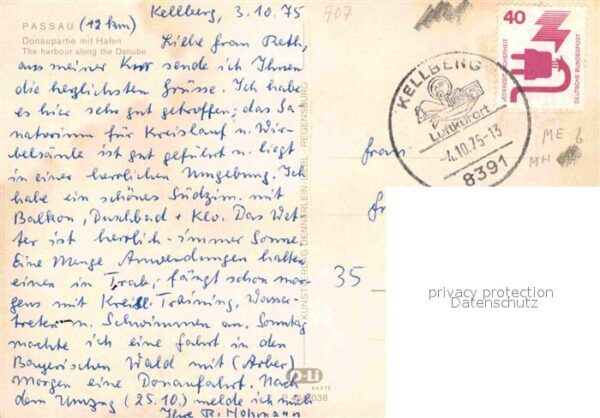 Kellberg, 3.10.75
907
PASSAU (12 km)
Donaupartie mit Hafen
The harbour along the Danube
Liebe Frau Reth,
aus meiner Kur sende ich Ihnen
die herzlichsten Grüsse. Ich habe
es hier sehr gut getroffen; das Sa-
natorium für Kreislauf u. Wir-
belsäule ist gut geführt u. liegt
in einer herrlichen Umgebung. Ich
habe ein schönes Südzim. mit
Balkon, Duschbad + Klo. Das Wet-
ter ist herrlich - immer Sonne
Eine Menge Anwendungen halten
einen in Trab, fängt schon mor-
gens mit Kreisl. Training, Wasser-
treten u. Schwimmen an. Sonntag
machte ich eine Fahrt in den
Bayerischen Wald mit (Arber)
Morgen eine Donaufahrt. Nach
dem Umzug (25.10.) melde ich mich
Ihre R. Hohmann
KUNSTVERLAG DENNERLEIN REGENSBURG
O-Li
KARTE
KELLBERG
Luftkurort
-4.10.75-13
8391
40
JEDERZEIT SICHERHEIT
DEUTSCHE BUNDESPOST
ME 6
MH
Frau
35
privacy protection
Datenschutz